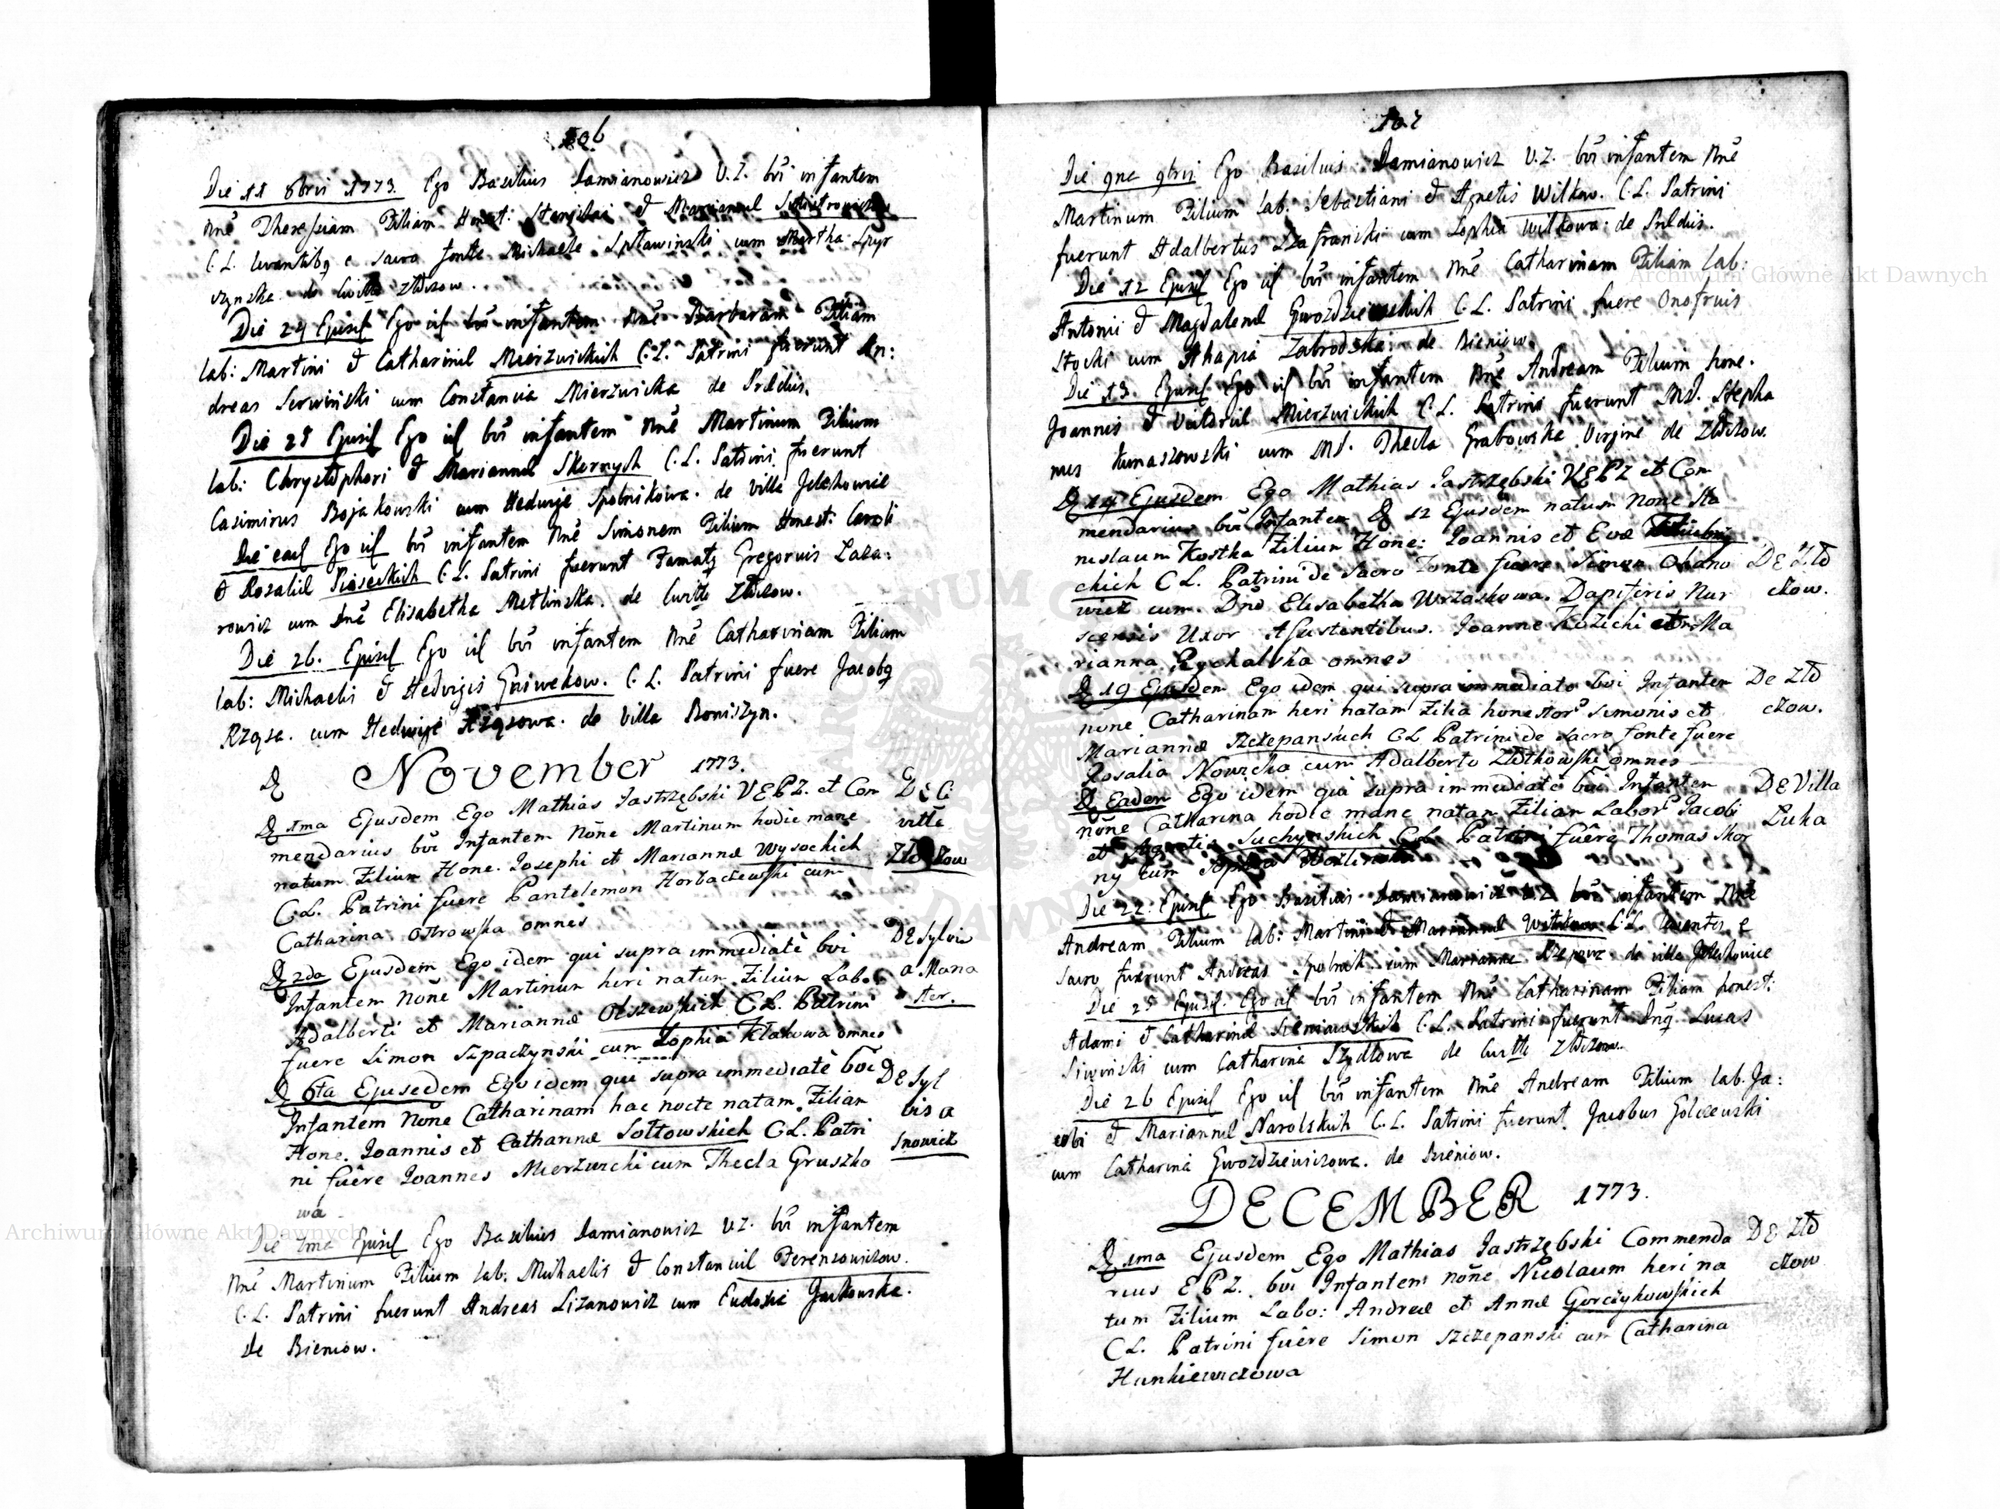 106
Die 11 8bris 1773. Ego Basilius Damianowicz V.Z. bŭi infantem
nnē Theressiam Filiam Honest: Stanislai et Mariannæ
C.L. levantibq e sacro fonte Michaele Spławinski cum Martha Szyr
czynska de Civitte Złoczow.
Die 24 Ejusd Ego id bŭi infantem nnē Barbaram Filiam
lab: Martini et Catharinæ Mierzwickich C.L. Patrini fuerunt An:
dreas Serwiński cum Constancia Mierzwicka de Prældiis.
Die 25 Ejusd Ego id bŭi infantem nnē Martinum Filium
lab: Chrystophori et Mariannæ Skernych C.L. Patrini fuerunt
Casimirus Bojakowski cum Hedwige Spolnikowa. de Villa Jelechowice
Die ead Ego id bŭi infantem nnē Simonem Filium Honest: Caroli
et Rosaliæ Piaseckich C.L. Patrini fuerunt Famatq Gregorius Laza:
rowicz cum Dnē Elisabetha Metlinska. de Civitte Złoczow.
Die 26. Ejusd Ego id bŭi infantem nnē Catharinam Filiam
lab: Michaelis et Hedvigis Gniwekow. C.L. Patrini fuere Jacobq
Rzqsa. cum Hedwige Rzqsowa. de Villa Boniszyn.
D November 1773.
D 1ma Ejusdem Ego Mathias Jastrzębski VEPZ. et Com
mendarius bŭi Infantem Nōne Martinum hodie mane
natum Filium Hone. Josephi et Mariannæ Wysockich
C.L. Patrini fuere Pantelemon Horbaczewski cum
Catharina Ostrowska omnes
DE C
vitte
Złoczow
D 2da Ejusdem Ego idem qui supra immediatè bvi
Infantem Nōne Martinum heri natum Filium Labo.
Adalberti et Mariannæ Olszewskich C.L. Patrini
fuere Simon Szpaczynski cum Zophia Kłakowa omnes
DE Sylvis
a Mona
ster.
D 6ta Ejusedem Ego idem qui supra immediatè bŏi
Infantem Nōne Catharinam hac nocte natam Filiam
Hone. Joannis et Catharinæ Sołtowskich C.L. Patri
ni fuêre Joannes Mierzwicki cum Thecla Gruszko
wa
DE Syl
bis a
Snowicz
Die 7ma Ejusd Ego Basilius Damianowicz V.Z. bŭi infantem
nnē Martinum Filium lab: Michaelis et Constanciæ Ferenzowiczow.
C.L. Patrini fuerunt Andreas Lizanowicz cum Eudoxia Jackowska.
de Bieniow.
107
Die 9na 9bris Ego Basilius Damianowicz V.Z. bŭi infantem nnē
Martinum Filium lab. Sebastiani et Agnetis Wilkow. C.L. Patrini
fuerunt Adalbertus Szafranski cum Zophia Wilkowa: de Prældiis.
Die 12 Ejusd Ego id bŭi infantem nnē Catharinam Filiam lab:
Antonii et Magdalenæ Gwozdziewskich C.L. Patrini fuere Onofruis
Stocki cum Ahapia Zabrodska: de Bieniow.
Die 13. Ejusd Ego id bŭi infantem nnē Andream Filium hone.
Joannis et Victoriæ Mierzwickich C.L. Patrini fuerunt Md. Stepha
nus Tumaszowski cum Md. Thecla Grabowska Virgine de Złoczow.
D 14 Ejusdem Ego Mathias Jastrzębski VEPZ et Com
mendarius bŭi Infantem D 12 Ejusdem natum None Sta
nislaum Kostka Filium Hone: Joannis et Evæ
ckich C.L. Patrini de Sacro Fonte fuere Simon Ohano
wicz cum Dnā Elisabetha Wrzaskowa. Dapiferis Nur
scensis Uxor Assistentibus. Joanne Kozicki et Ma
rianna Rychalska omnes
DE Zło
czow.
D 19 Ejusdem Ego idem qui supra immediato bvi Infantem
none Catharinam heri natam Filia honestor Simonis et
Mariannæ Szczepanskich CL Patrini de Sacro fonte fuere
Rosalia Nowicka cum Adalberto Złotkowski omnes
De Zło
czow.
D Eadem Ego idem qui supra immediatè bvi Infantem
nōne Catharina hodie mane natam Filiam Labor. Jacobi
et Agnetis Suchynskich C.L. Patrini fuêre Thomas Skor
ny cum Sophia
DE Villa
Luka
Die 22. Ejusd Ego Basilius Damianowicz V.Z. bŭi infantem nnē
Andream Filium lab: Martini et Mariannæ Witkow C.L. levantes e
sacro fuerunt Andreas Spolnik cum Marianna de villa Jelechowice
Die 25 Ejusd. Ego id bŭi infantem nnē Catharinam Filiam honest:
Adami et Catharinæ Sieniawskich C.L. Patrini fuerunt Lucas
Siwiński cum Catharina Szydłowa de Civitte Złoczow.
Die 26 Ejusd Ego id bŭi infantem nnē Andream Filium lab. Ja:
cobi et Mariannæ Narolskich C.L. Patrini fuerunt Jacobus Golczewski
cum Catharina Gwozdziewiczowa. de Bieniow.
DECEMBER 1773.
D 1ma Ejusdem Ego Mathias Jastrzębski Commenda
rius EPZ. bvi Infantem nōne Nicolaum heri na
tum Filium Labo: Andreæ et Annæ Gorczykowskich
C.L. Patrini fuêre Simon Szczepanski cum Catharina
Hunkiewiczowa
DE Zło
czow
Archiwum Główne Akt Dawnych
Archiwum Główne Akt Dawnych